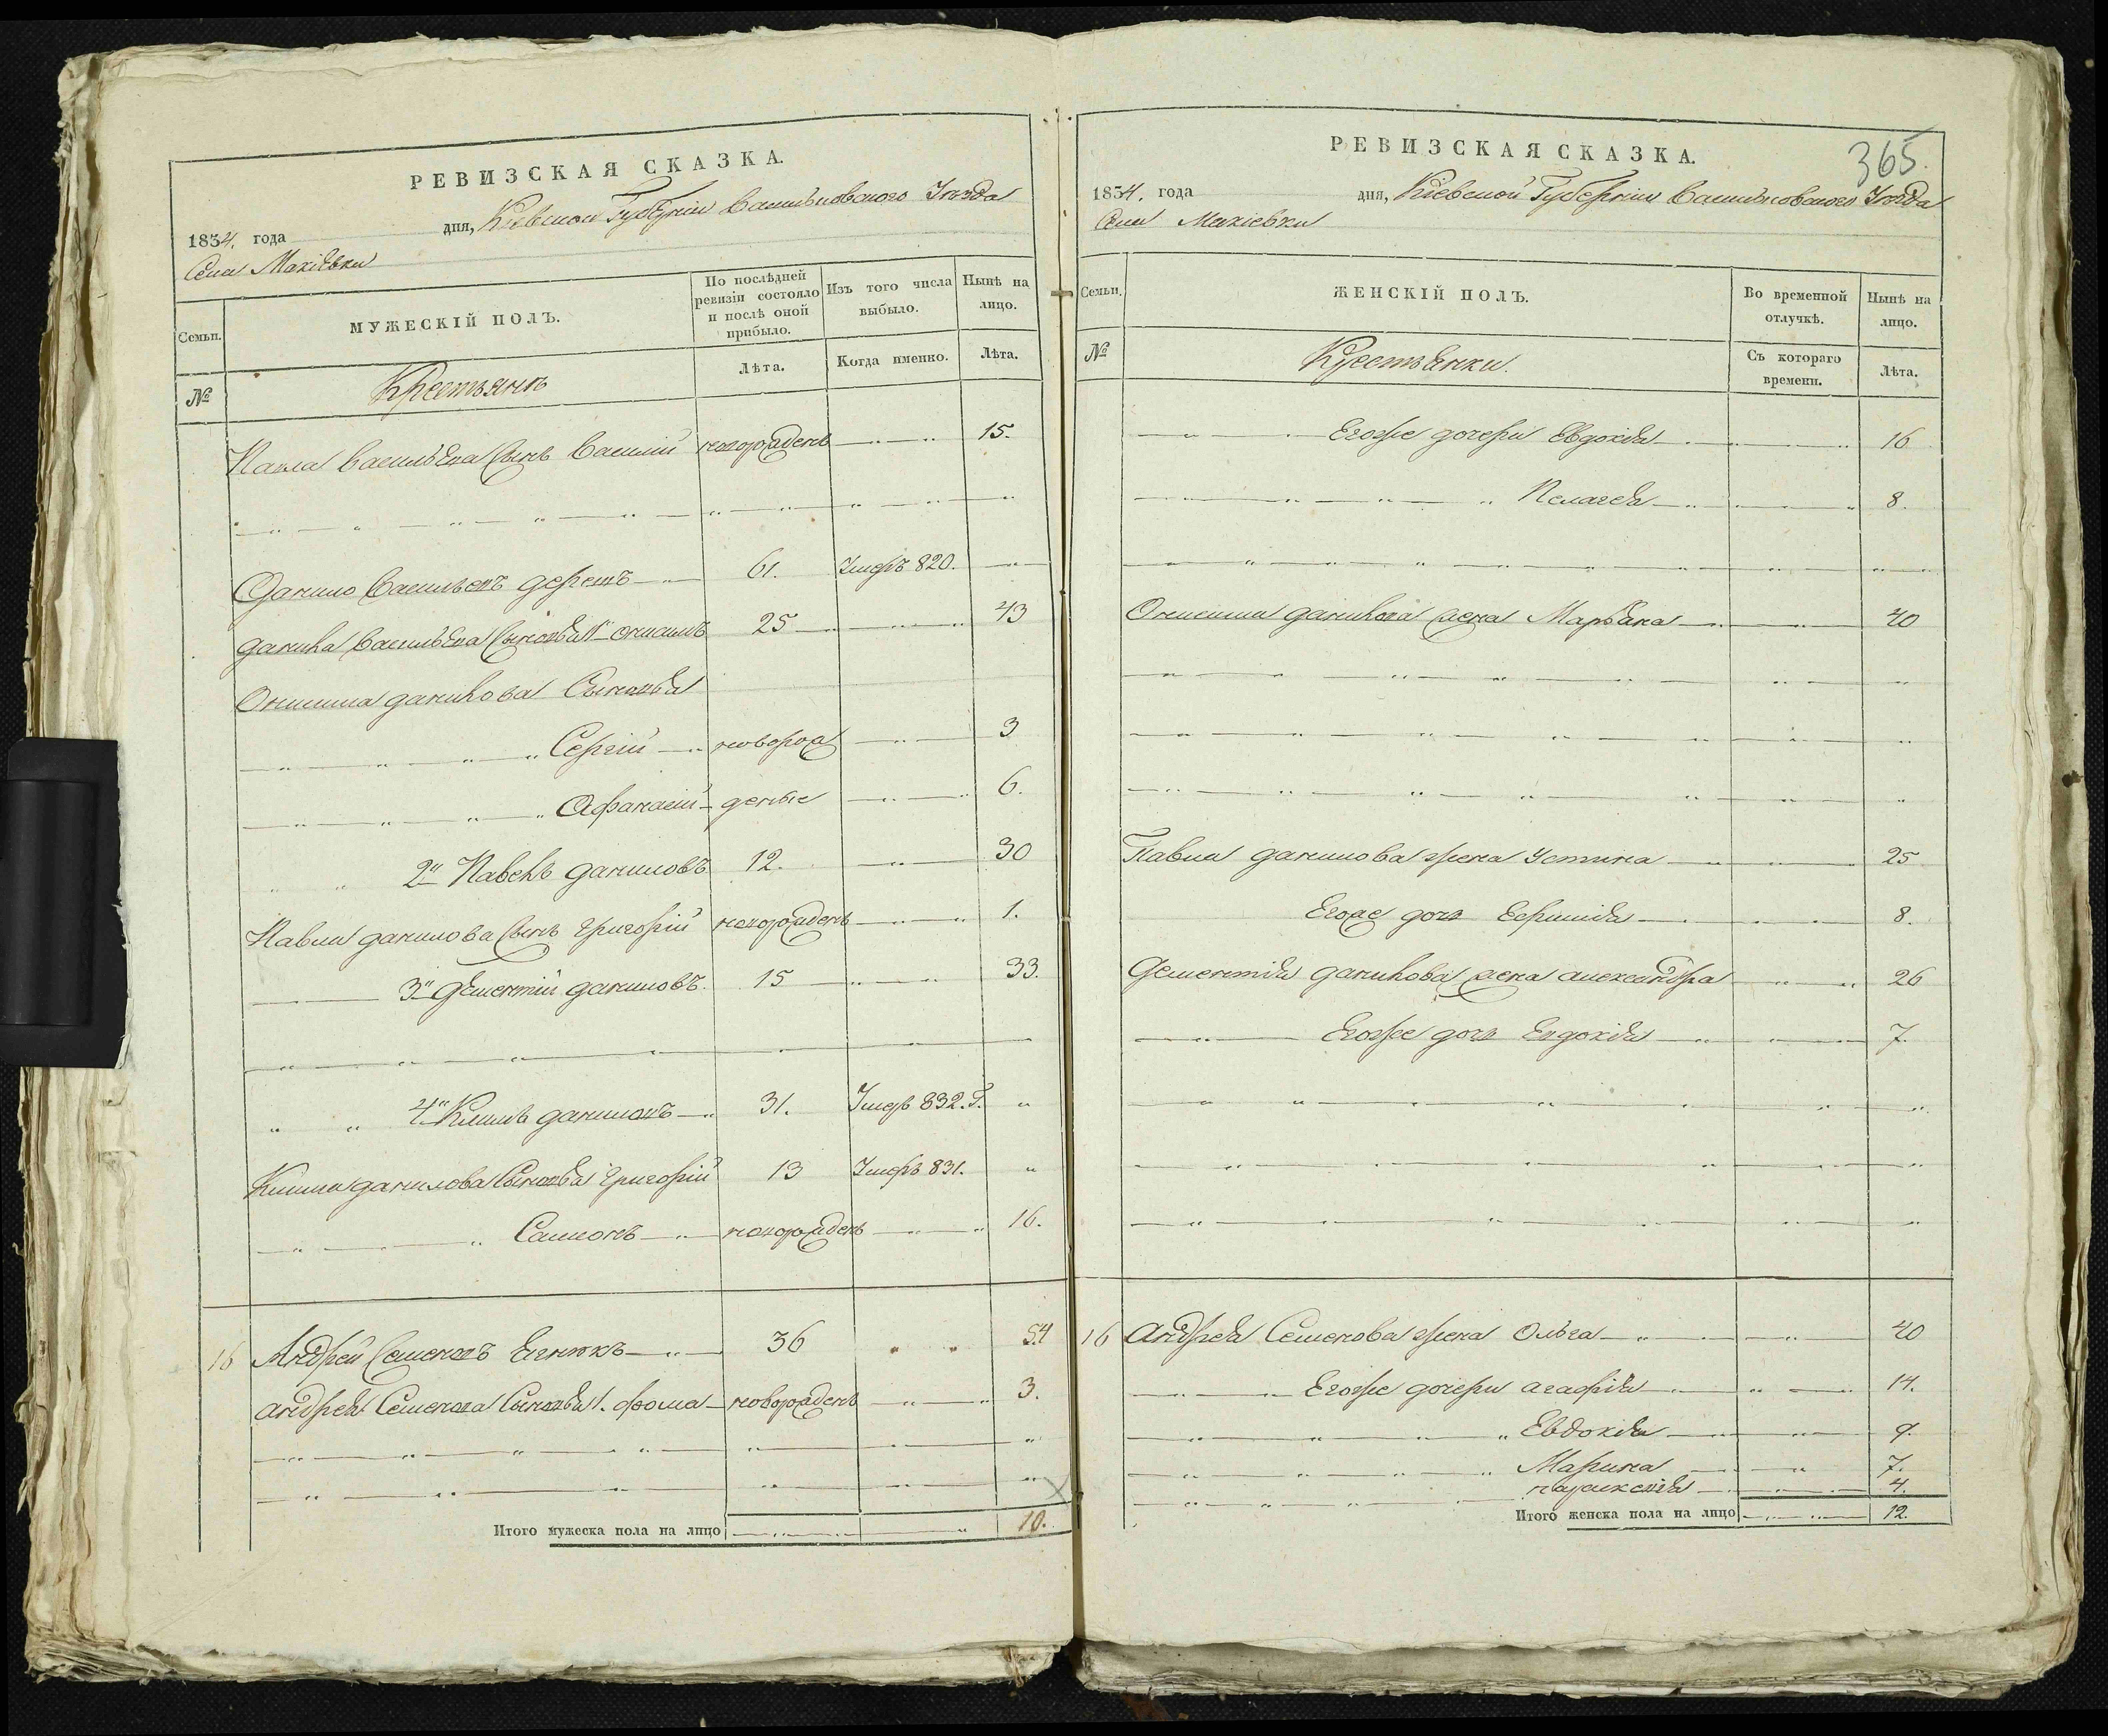 РЕВИЗСКАЯ СКАЗКА.
1834. года дня, Кіевской Губерніи Васильковскаго Уѣзда
Села Махіевки
Семьи.
МУЖЕСКІЙ ПОЛЪ.
По послѣдней ревизіи состояло и послѣ оной прибыло.
Изъ того числа выбыло.
Нынѣ на лицо.
№
Крестьянъ
Лѣта.
Когда именно.
Лѣта.
Павла Васильева Сынъ Василій новорожденъ 15.
Данило Васильевъ 61. Умеръ 820.
Данила Васильева Сыновья 1й Онисимъ 25 43
Онисима Данилова Сыновья
Сергій новорож 3
Афанасій деные 6.
2й Павелъ Даниловъ 12. 30
Павла Данилова Сынъ Григорій новорожденъ 1.
3й Дементій Даниловъ. 15 33.
4й Климъ Даниловъ 31. Умеръ 832. Г.
Клима Данилова Сыновья Григорій 13 Умеръ 831.
Самсонъ новорожденъ 16.
16 Андрей Семеновъ 36 54
Андрея Семенова Сыновья 1. Фома новорожденъ 3.
Итого мужеска пола на лицо 10.
365.
РЕВИЗСКАЯ СКАЗКА.
1834. года дня, Кіевской Губерніи Васильковскаго Уѣзда
Села Махіевки
Семьи.
ЖЕНСКІЙ ПОЛЪ.
Во временной отлучкѣ.
Нынѣ на лицо.
№
Крестьянки.
Съ котораго времени.
Лѣта.
Егоже дочери Евдокія 16
Пелагея 8.
Онисима Данилова жена Марьяна 40
Павла Данилова жена Устина 25
Егоже дочь 8.
Дементія Данилова жена Александра 26
Егоже дочь Евдокія 7.
16 Андрея Семенова жена Ольга 40
Егоже дочери Агафія 14.
Евдокія 9.
Марина 7.
Параскевія 4.
Итого женска пола на лицо 12.